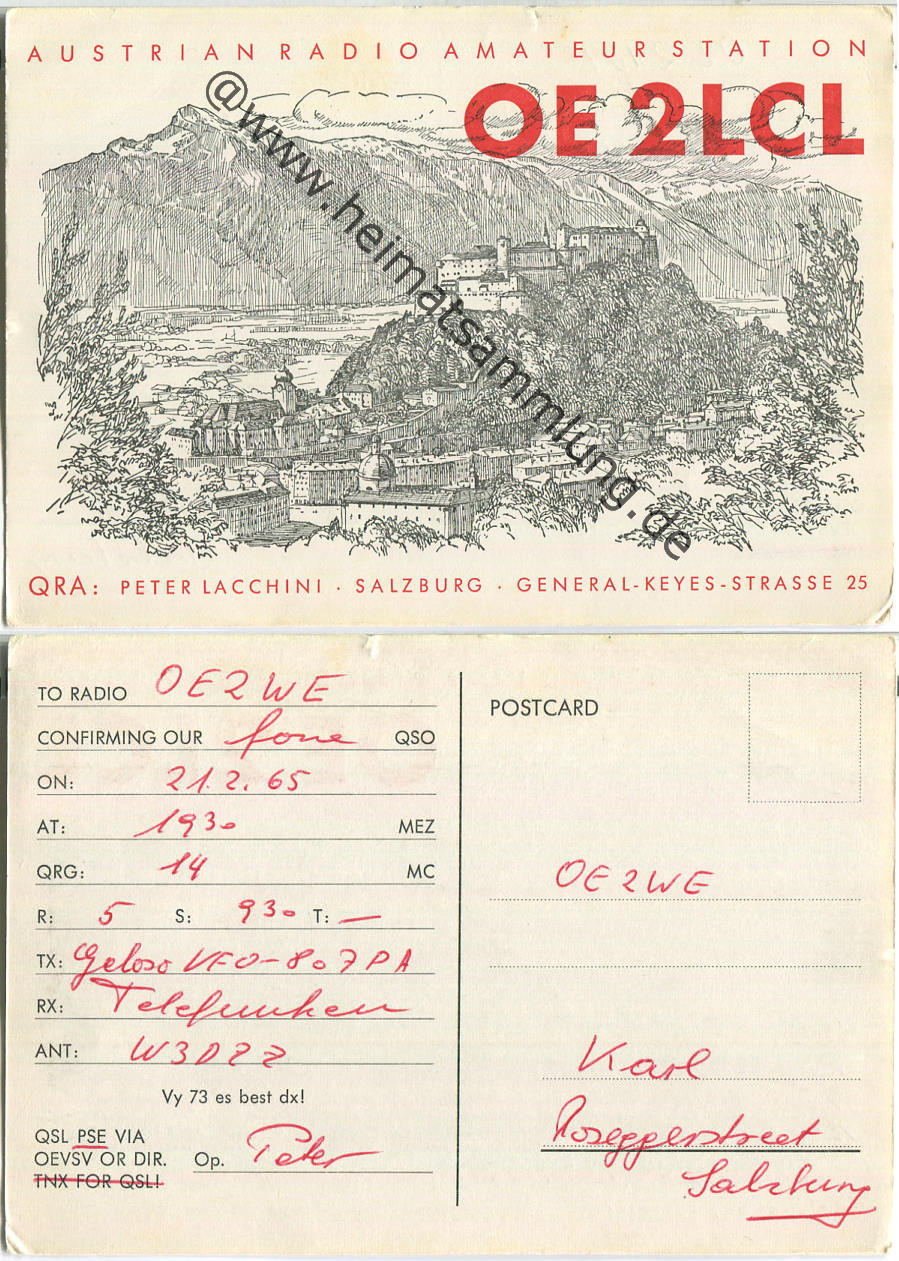 AUSTRIAN RADIO AMATEUR STATION
OE 2LCL
@www.heimatsammlung.de
QRA: PETER LACCHINI · SALZBURG · GENERAL-KEYES-STRASSE 25
TO RADIO OE2WE
CONFIRMING OUR fone QSO
ON: 21.2.65
AT: 1930 MEZ
QRG: 14 MC
R: 5 S: 930 T: —
TX: Geloso VFO-807PA
RX: Telefunken
ANT: W3DZZ
Vy 73 es best dx!
QSL PSE VIA
OEVSV OR DIR. Op. Peter
TNX FOR QSL!
POSTCARD
OE2WE
Karl
Roseggerstreet
Salzburg